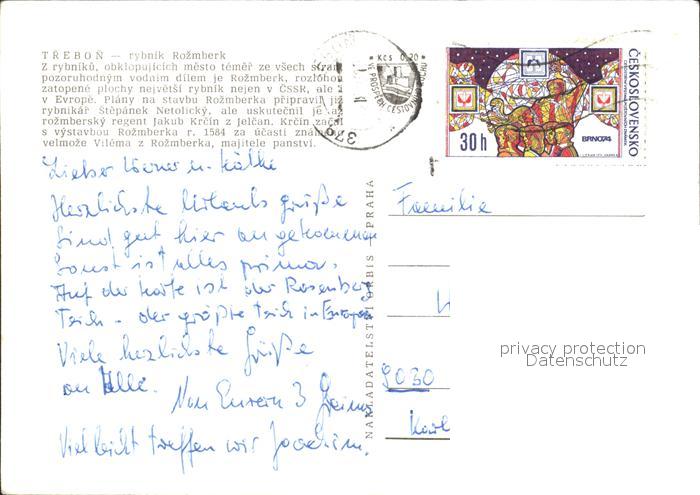 TŘEBOŇ — rybník Rožmberk
Z rybníků, obklopujících město téměř ze všech stran
pozoruhodným vodním dílem je Rožmberk, rozlohou
zatopené plochy největší rybník nejen v ČSSR, ale
v Evropě. Plány na stavbu Rožmberka připravil již
rybnikář Štěpánek Netolický, ale uskutečnil je
rožmberský regent Jakub Krčín z Jelčan. Krčín začal
s výstavbou Rožmberka r. 1584 za účasti
velmože Viléma z Rožmberka, majitele panství.
Kčs 0,20
379
ČESKOSLOVENSKO
30h
BRNO74
Lieber Werner u. Käthe
Herzlichste Urlaubs grüße
Sind gut hier angekommen
Sonst ist alles prima.
Auf der Karte ist der Rosenberg
Teich - der größte Teich in Europa
Viele herzlichste Grüße
an Alle.
Von Euren 3
Vielleicht treffen wir Joachim.
NAKLADATELSTVÍ ORBIS PRAHA
Familie
9030
Karl
privacy protection
Datenschutz